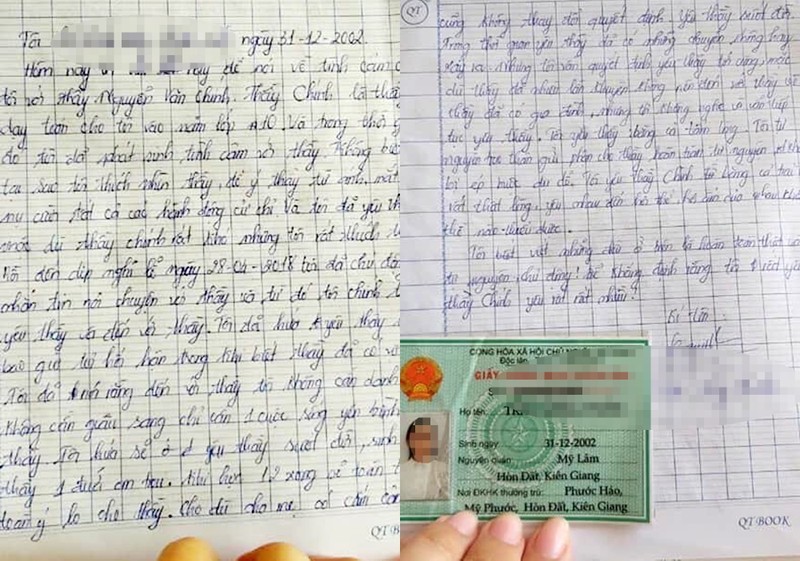 Tôi ngày 31-12-2002
Hôm nay để nói về tình cảm c
tôi với thầy Nguyễn Văn Chinh. Thầy Chính là thầ
dạy toán cho tôi vào năm lớp A10. Và trong thời g
đó tôi đã phát sinh tình cảm với thầy. Không biế
tại sao tôi thích nhìn thầy, để ý thầy từ anh mắt
nụ cười tất cả các hành động cử chỉ và tôi đã yêu th
mặc dù thầy chính rất khó nhưng tôi rất thích.
Tôi đến dịp nghỉ lễ ngày 28-04-2018 tôi đã chủ độ
nhắn tin nói chuyện với thầy và từ đó tôi chính t
yêu thầy và đến với thầy. Tôi đã hứa yêu thầy
bao giờ hối hận trong khi biết thầy đã có v
Tôi đã rằng đến với thầy tôi không cần danh
không cần giàu sang chỉ cần 1 cuộc sống yên bình
thầy. Tôi hứa sẽ yêu thầy suốt đời, sinh
thầy 1 đứa em bé. Khi học 12 xong sẽ toàn t
toàn ý lo cho thầy. Cho dù cha mẹ có cấm cả
QT BOOK
QT
cũng không thay đổi quyết định. Yêu thầy suốt đời.
Trong thời gian yêu thầy đã có những chuyện không hay
xảy ra. Nhưng tôi vẫn quyết định yêu thầy tới cùng, mặc
dù thầy đã nhiều lần khuyên không nên đến với thầy vì
thầy đã có gia đình, nhưng tôi không nghe và vẫn tiếp
tục yêu thầy. Tôi yêu thầy bằng cả tấm lòng. Tôi tự
nguyện trao thân gửi phận cho thầy hoàn toàn tự nguyện
bị ép buộc dụ dỗ. Tôi yêu thầy Chính từ bằng cả trái t
rất thật lòng, yêu nhau đến
thế nào
Tôi biết viết những điều ở trên là hoàn toàn thật và
tự nguyện chủ động! Để khẳng định rằng tôi thật yêu
thầy Chính yêu rất rất nhiều!
Kí tên
CỘNG HÒA XÃ HỘI CHỦ
Độc lập
GIẤY
Họ tên:
Sinh ngày: 31-12-2002
Nguyên quán: Mỹ Lâm
Hòn Đất, Kiên Giang
Nơi ĐKHK thường trú: Phước Hảo,
Mỹ Phước, Hòn Đất, Kiên Giang
QT BOOK